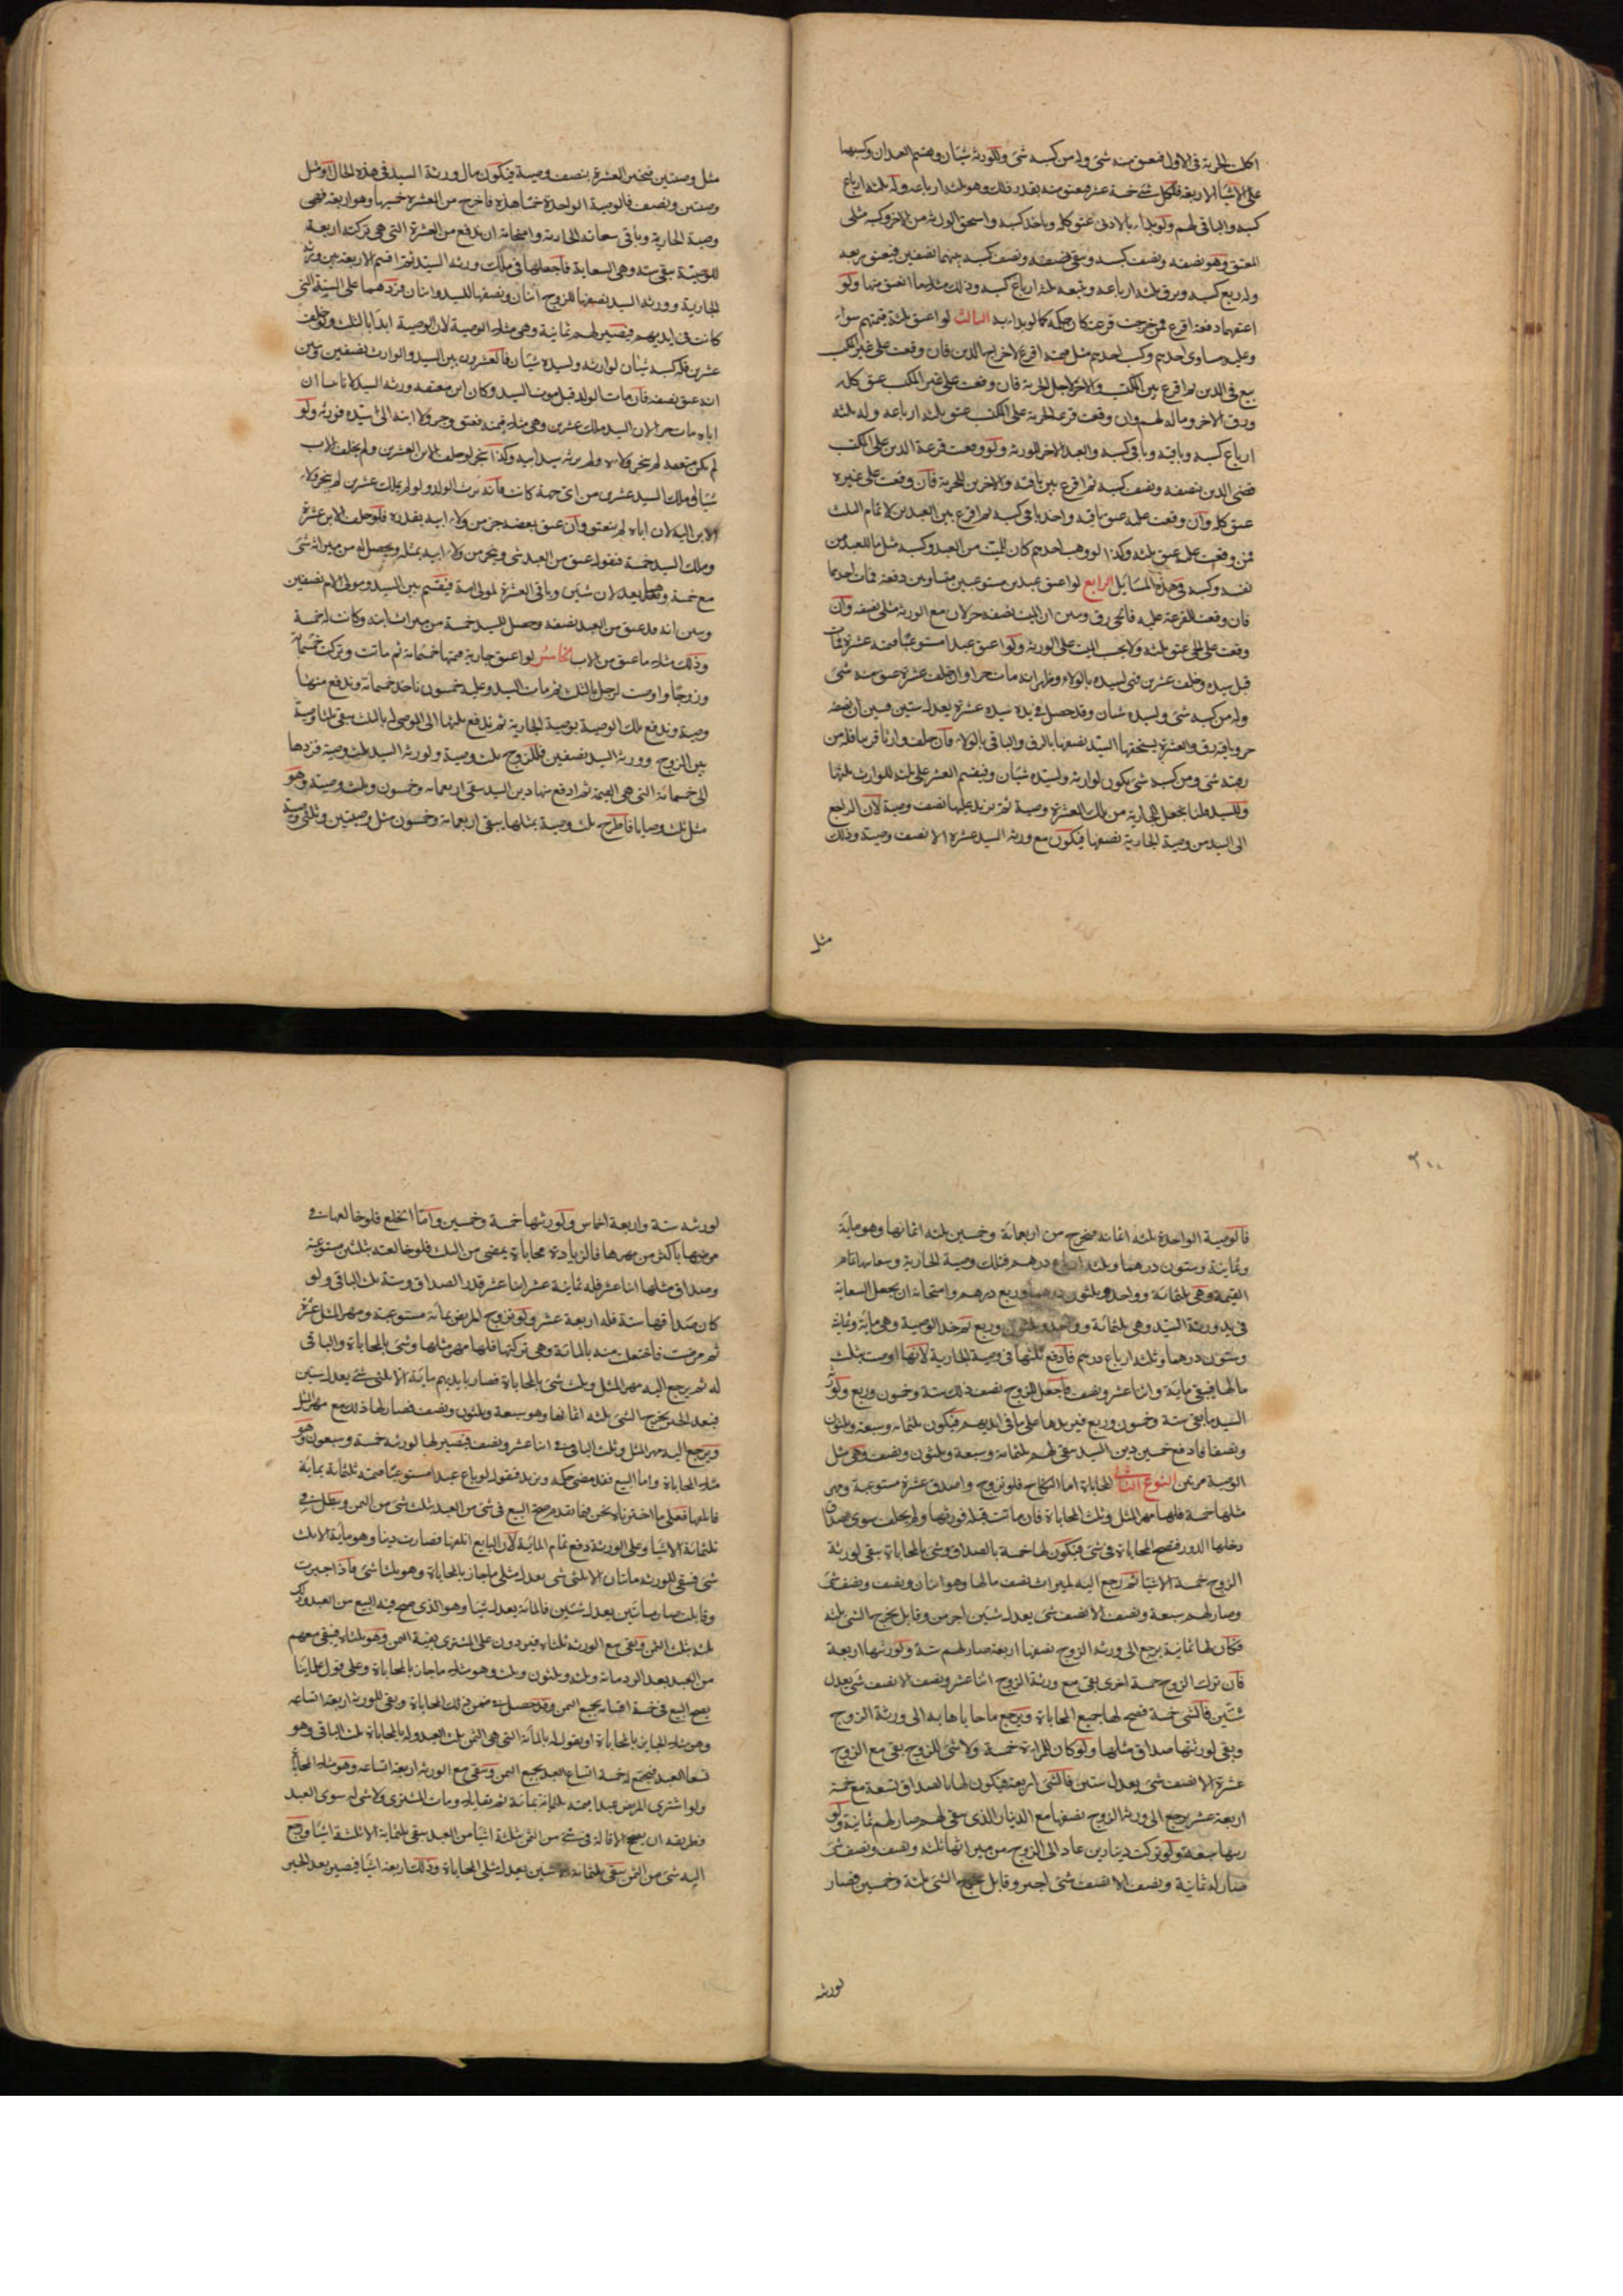 اكملت الحرية في الاول فيعتق منه شئ وله من كسبه شئ وللورثة شيئان ويقسم العبدان وكسبهما
على الاشياء الاربعة فلكل شئ خمسة عشر فيعتق منه بقدر ذلك وهو ثلثة ارباعه وله ثلثة ارباع
كسبه والباقي لهم ولو بداء بالادنى عتق كله وياخذ كسبه واستحق الورثة من الاخر وكسبه مثلى
المعتق وهو نصفه ونصف كسبه وبقى نصفه ونصف كسبه بينهما نصفين فيعتق ربعه
وله ربع كسبه ويرق ثلثة ارباعه ويتبعه ثلثة ارباع كسبه وذلك مثلا ما انعتق منها ولو
اعتقهما دفعة اقرع فمن خرجت قرعته كان حكمه كما لو بداء به الثالث لو اعتق ثلثة قيمتهم سواء
وعليه دين يساوى احدهم وكسب احدهم مثل قيمته اقرع لاخراج الدين فان وقعت على غير المكتسب
بيع في الدين ثم اقرع بين المكتسب والاخر لاجل الحرية فان وقعت على غير المكتسب عتق كله
ورق الاخر وماله لهم وان وقعت قرعة الحرية على المكتسب عتق ثلثة ارباعه وله ثلثة
ارباع كسبه وباقيه وباقي كسبه والعبد الاخر للورثة ولو وقعت قرعة الدين على المكتسب
قضى الدين بنصفه ونصف كسبه ثم اقرع بين باقيه والاخرين للحرية فان وقعت على غيره
عتق كله وان وقعت عليه عتق باقيه واخذ باقي كسبه ثم اقرع بين العبدين لاتمام الثلث
فمن وقعت عليه عتق ثلثه وكذا لو وهب احدهم كان للميت من العبد وكسبه مثل ما للعبد من
نفسه وكسبه في هذه المسايل الرابع لو اعتق عبدين مستوعبين متساويين دفعة فمات احدهما
فان وقعت القرعة عليه فالحي رق وتبين ان الميت نصفه حر لان مع الورثة مثلى نصفه وان
وقعت على الحي عتق ثلثه ولا يحسب الميت على الورثة ولو اعتق عبدا مستوعبا قيمته عشرة فمات
قبل سيده وخلف عشرين فهي لسيده بالولاء وظهر انه مات حرا ولو خلف عشرة عتق منه شئ
وله من كسبه شئ ولسيده شيئان وقد حصل في يد سيده عشرة يعدل شيئين فتبين ان نصفه
حر وباقيه رق والعشرة يستحقها السيد نصفها بالرق والباقي بالولاء فان خلف وارثا قريبا فله من
رقبته شئ ومن كسبه شئ يكون لوارثه ولسيده شيئان وتقسم العشر على ثلثة للوارث ثلثها
وللسيد ثلثاها بجعل للجارية من تلك العشرة وصية ثم نزيد عليها نصف وصية لان الراجع
الى السيد من وصية الجارية نصفها فيكون مع ورثة السيد عشرة الا نصف وصية وذلك
مثل
مثل وصيتين فتجبر العشرة بنصف وصية فيكون مال ورثة السيد في هذه الحال او مثل
وصيتين ونصف فالوصية الواحدة خمسا هذه فاخرج من العشرة خمسيها وهو اربعة فهي
وصية الجارية وباقي سعايته الجارية وامتحانه ان تدفع من العشرة التي هي تركته اربعة
للوصية بقى ستة وهي السعاية فاجعلها في ملك ورثة السيد ثم اقسم الاربعة بين ورثة
الجارية وورثة السيد نصفها للزوج اثنان ونصفها للسيد واثنان فزدهما على الستة التي
كانت في ايديهم فيصير لهم ثمانية وهي مثلا الوصية لان الوصية ابدا بالثلث ولو خلف
عشرين فله كسبه شيئان لوارثه ولسيده شيئان فالعشرون بين السيد والوارث نصفين وتبين
انه عتق نصفه فان مات الولد قبل موت السيد وكان ابن معتقه ورثه السيد لانا تبينا ان
اباه مات حرا لان السيد ملك عشرين وهي مثلا قيمته فعتق وجر ولاء ابنه الى سيده فورثه ولو
لم يكن معتقه لم ينجر ولاءه ولم يرثه سيد ابيه وكذا نقول لو خلف الابن العشرين ولم يخلف الاب
شيئا او ملك السيد عشرين من اى جهة كانت فانه يرث الولد ولو لم يملك عشرين لم ينجر ولاء
الابن اليه لان اباه لم ينعتق وان عتق بعضه جر من ولاء ابنه بقدره فلو خلف الابن عشرة
وملك السيد خمسة فنقول عتق من العبد شئ وينجر من ولاء ابنه بمثله ويحصل له من ميراثه شئ
مع خمسة وهما يعدلان شيئين وباقي العشرة لمولى امه فيقسم بين السيد ومولى الام نصفين
وتبين انه قد عتق من العبد نصفه وحصل للسيد خمسة من ميراث ابنه وكانت له خمسة
وذلك مثلا ما عتق من الاب الخامس لو اعتق جارية قيمتها خمسمائة ثم ماتت وتركت خمسمائة
وزوجا واوصت لرجل بالثلث ثم مات السيد وعليه خمسون ناخذ خمسمائة وتدفع منها
وصية وتدفع تلك الوصية بوصية الجارية ثم تدفع ثلثها الى الموصى له بالثلث يبقى ثلثا وصية
بين الزوج وورثة السيد نصفين فللزوج ثلث وصية ولورثة السيد ثلث وصية فزدها
الى خمسمائة التي هي القيمة ثم ادفع منها دين السيد يبقى اربعمائة وخمسون وثلث وصية وهو
مثل ثلث وصايا فاطرح ثلث وصية بمثلها يبقى اربعمائة وخمسون مثل وصيتين وثلثى وصية
٣٠٠
فالوصية الواحدة ثلثه اثمانه فنخرج من اربعمائة وخمسين ثلثة اثمانها وهو ماية
وثمانية وستون درهما وثلثة ارباع درهم فتلك وصية الجارية وسعايتها تمام
القيمة وهي ثلثمائة وواحد وثلثون درهما وربع درهم وامتحانه ان يجعل السعاية
في يد ورثة السيد وهي ثلثمائة وواحد وثلثون وربع ثم خذ الوصية وهي ماية وثمانية
وستون درهما وثلثة ارباع درهم فادفع ثلثها في وصية الجارية لانها اوصت بثلث
مالها فيبقى ماية واثنا عشر ونصف فاجعل للزوج نصف ذلك ستة وخمسون وربع ولورثة
السيد ما بقى ستة وخمسون وربع فيزيدها على ما في ايديهم فيكون ثلثمائة وسبعة وثلثون
ونصفا فادفع خمسين دين السيد يبقى لهم ثلثمائة وسبعة وثلثون ونصف وهي مثل
الوصية مرتين النوع الثاني المحاباة اما النكاح فلو تزوج واصدق عشرة مستوعبة ومهر
مثلها خمسة فلها مهر المثل وثلث المحاباة فان ماتت قبله فورثها ولم يخلف سوى الصداق
دخلها الدور فتصح المحاباة في شئ فيكون لها خمسة بالصداق وشئ بالمحاباة يبقى لورثة
الزوج خمسة الا شيئا ثم رجع اليه بالميراث نصف مالها وهو اثنان ونصف ونصف شئ
وصار لهم سبعة ونصف الا نصف شئ يعدل شيئين اجبر وقابل يخرج الشئ ثلثة
فكان لها ثمانية يرجع الى ورثة الزوج نصفها اربعة صار لهم ستة ولورثتها اربعة
فان ترك الزوج خمسة اخرى بقى مع ورثة الزوج اثنا عشر ونصف الا نصف شئ يعدل
شيئين فالشئ خمسة فتصح لها جميع المحاباة ويرجع ما حاباها به الى ورثة الزوج
وبقى لورثتها صداق مثلها ولو كان للمراة خمسة ولا شئ للزوج يبقى مع الزوج
عشرة الا نصف شئ يعدل شيئين فالشئ اربعة فيكون لها بالصداق تسعة مع خمسة
اربعة عشر يرجع الى ورثة الزوج نصفها مع الدينار الذي بقى لهم صار لهم ثمانية ولو
رثتها سبعة ولو تركت دينارين عاد الى الزوج من ميراثها ثلثة ونصف ونصف شئ
صار له ثمانية ونصف الا نصف شئ اجبر وقابل يخرج الشئ ثلثة وخمسين فصار
لورثه
لورثه ستة واربعة اخماس ولورثتها خمسة وخمسين واما الخلع فلو خالعها في
مرضها باكثر من مهرها فالزيادة محاباة يمضى من الثلث فلو خالعته بثلثين مستوعبة
وصداق مثلها اثنا عشر فله ثمانية عشر اثنا عشر قدر الصداق وستة ثلث الباقي ولو
كان صداقها ستة فله اربعة عشر ولو تزوج المريض بمائة مستوعبة ومهر المثل عشرة
ثم مرضت فاختلعت منه بالمائة وهي تركتها فلها مهر مثلها وشئ بالمحاباة والباقي
له ثم يرجع اليه مهر المثل وثلث شئ بالمحاباة فصار بايديهم ماية الا ثلثى شئ يعدل شيئين
فبعد الجبر يخرج الشئ ثلثة اثمانها وهو سبعة وثلثون ونصف فصار لها ذلك مع مهر المثل
ويرجع اليه مهر المثل وثلث الباقي اثنا عشر ونصف فيصير لها لورثه خمسة وسبعون وهو
مثلا المحاباة واما البيع فقد مضى حكمه ونزيد فنقول لو باع عبدا مستوعبا قيمته ثلثمائة بماية
فاتلفها فعلى ما اخترناه نحن فيما تقدم يصح البيع في شئ من العبد بثلث شئ من الثمن ويبطل في
ثلثمائة الا شيئا وعلى الورثة دفع تمام المائة لان البايع اتلفها فصارت دينا وهو ماية الا ثلث
شئ فبقى للورثة مائتان الا ثلثى شئ يعدل مثلى ما جاز بالمحاباة وهو ثلثا شئ فاذا اجبرت
وقابلت صار مائتين يعدل شيئين فالمائة يعدل شيئا وهو الذي صح فيه البيع من العبد وذلك
ثلثه بثلث الثمن وبقى مع الورثة ثلثاه فيردون على المشترى بقية الثمن وهو ثلثاه فيبقى معهم
من العبد بعد الرد مائة وثلثة وثلثون وثلث وهو مثلا ما جاز بالمحاباة وعلى قول علمائنا
يصح البيع في خمسة اتساعه بجميع الثمن وقد حصل في ضمن ذلك المحاباة وبقى للورثة اربعة اتساعه
وهو مثلا الجايز بالمحاباة او نقول له بالمائة التي هي الثمن ثلث العبد وله بالمحاباة ثلث الباقي وهو
تسعا العبد فيجتمع له خمسة اتساع العبد بجميع الثمن ويبقى مع الورثة اربعة اتساعه وهو مثلا المحاباة
ولو اشترى المريض عبدا قيمته ثلثمائة بمائة ثم تقايلا ومات المشترى ولا شئ له سوى العبد
فطريقه ان يصح الاقالة في شئ من الثمن بثلثة اشياء من العبد يبقى ثلثماية الا ثلثة اشياء ورجع
اليه شئ من الثمن يبقى ثلثمائة الا شيئين يعدل مثلى المحاباة وذلك اربعة اشياء فيصير بعد الجبر